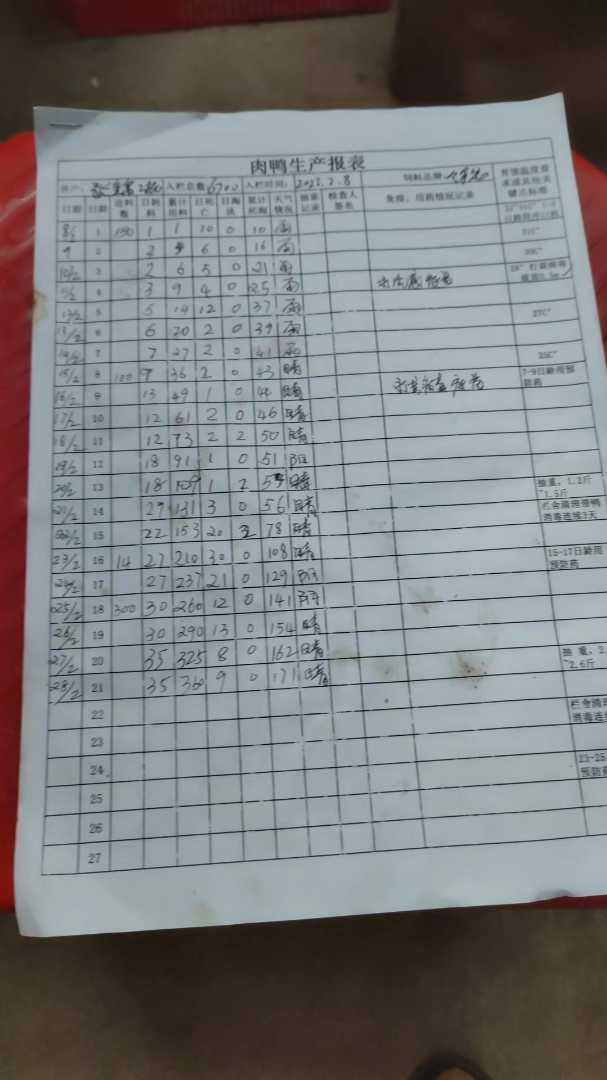 肉鸭生产报表
入栏总数 6700 入栏时间: 2023.2.8 饲料品牌
日期 日龄 进料数 日耗料 累计用料 日死亡 日淘汰 累计死淘 天气情况 抽重记录 检查人签名 免疫、用药情况记录
8/2 1 150 1 1 10 0 10 雨
9 2 6 0 16 雨
10/2 3 2 6 5 0 21 雨
4 3 9 4 0 25 雨
5 5 14 12 0 37 雨 27C°
13/2 6 6 20 2 0 39 雨
14/2 7 7 27 2 0 41 雨
15/2 8 100 9 36 2 0 43 晴 7-9日龄用预防药
16/2 9 13 49 1 0 44 晴
17/2 10 12 61 2 0 46 晴
18/2 11 12 73 2 2 50 晴
19/2 12 18 91 1 0 51 阴
20/2 13 18 109 1 2 晴 抽重,1.2斤~1.5斤
21/2 14 131 3 0 56 晴 栏舍清理带鸭消毒连续3天
22/2 15 22 153 20 2 78 晴
23/2 16 14 27 210 30 0 108 晴 15-17日龄用预防药
24/2 17 27 237 21 0 129 阴
25/2 18 300 30 260 12 0 141 阴
26/2 19 30 290 13 0 154 晴
27/2 20 35 325 8 0 162 晴 抽重,2.
~2.6斤
28/2 21 35 360 9 0 171 晴
22 栏舍清理
消毒连续
23
24 23-25
预防药
25
26
27